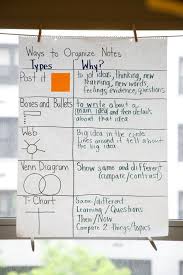 Ways to Organize Notes
Types Why?
Post it
to jot ideas, thinking, new
learning, new words,
Feelings, evidence, questions
Boxes and Bullets
to write about a
main idea and then details
about that idea
Web
Big idea in the circle
Lines around it tell about
the big idea
Venn Diagram
Show same and different
(compare/contrast)
T-Chart
Same/different
Learning/Questions
Then/Now
Compare 2 things/topics